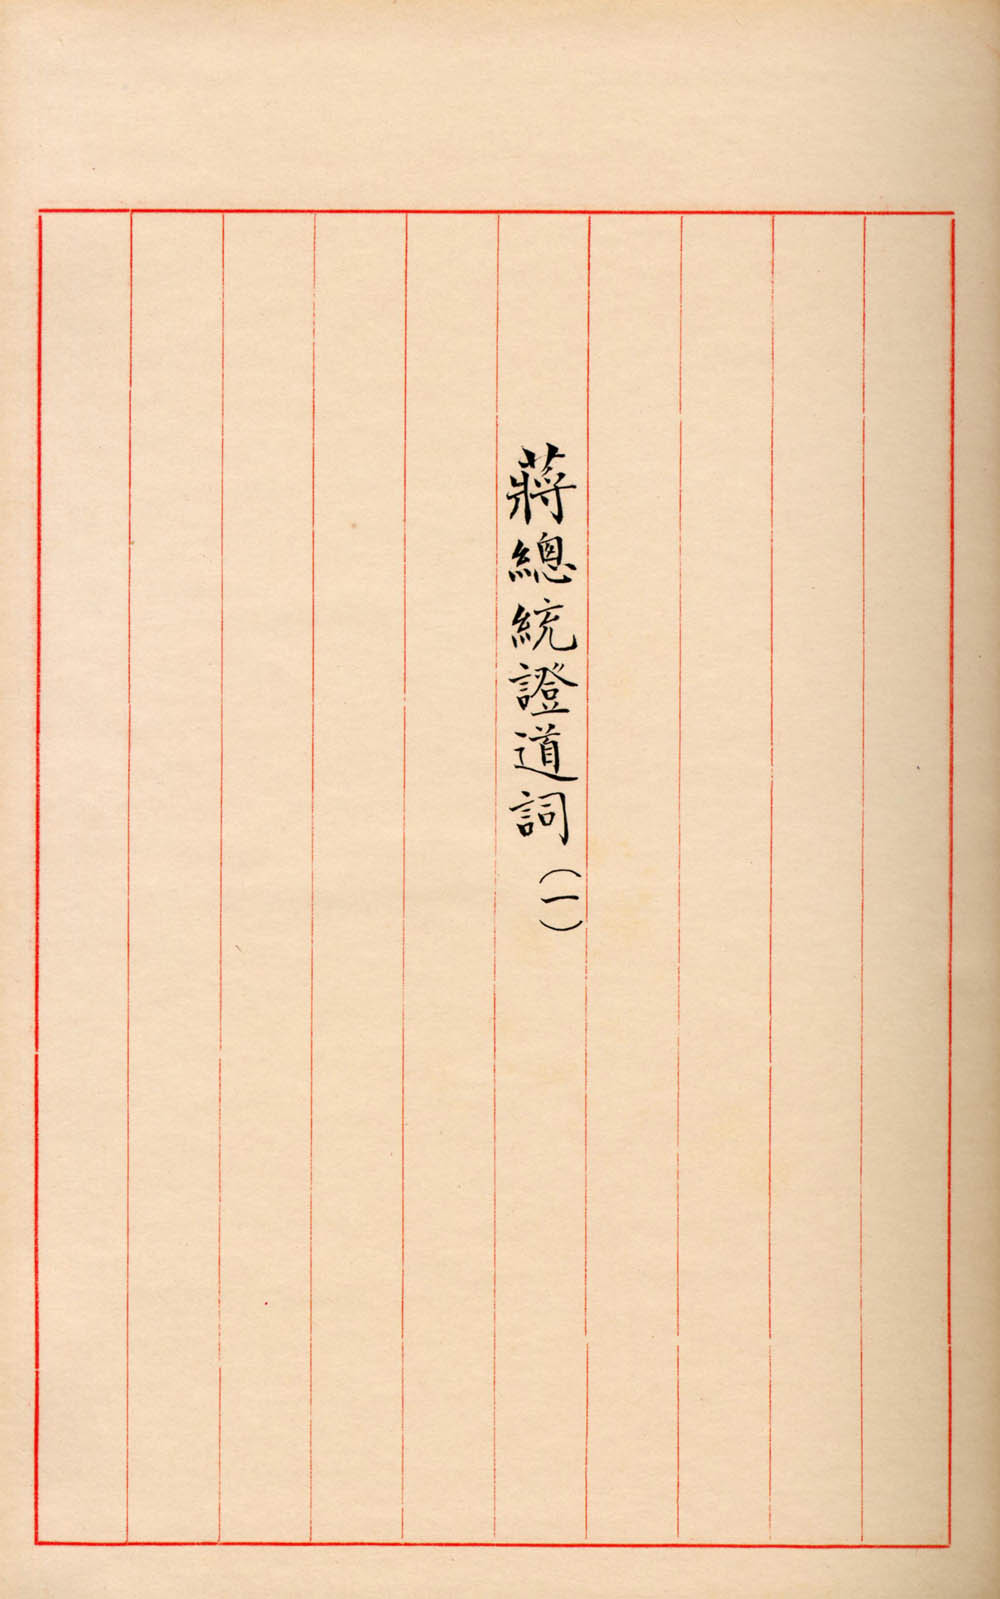 蔣總統證道詞(一)